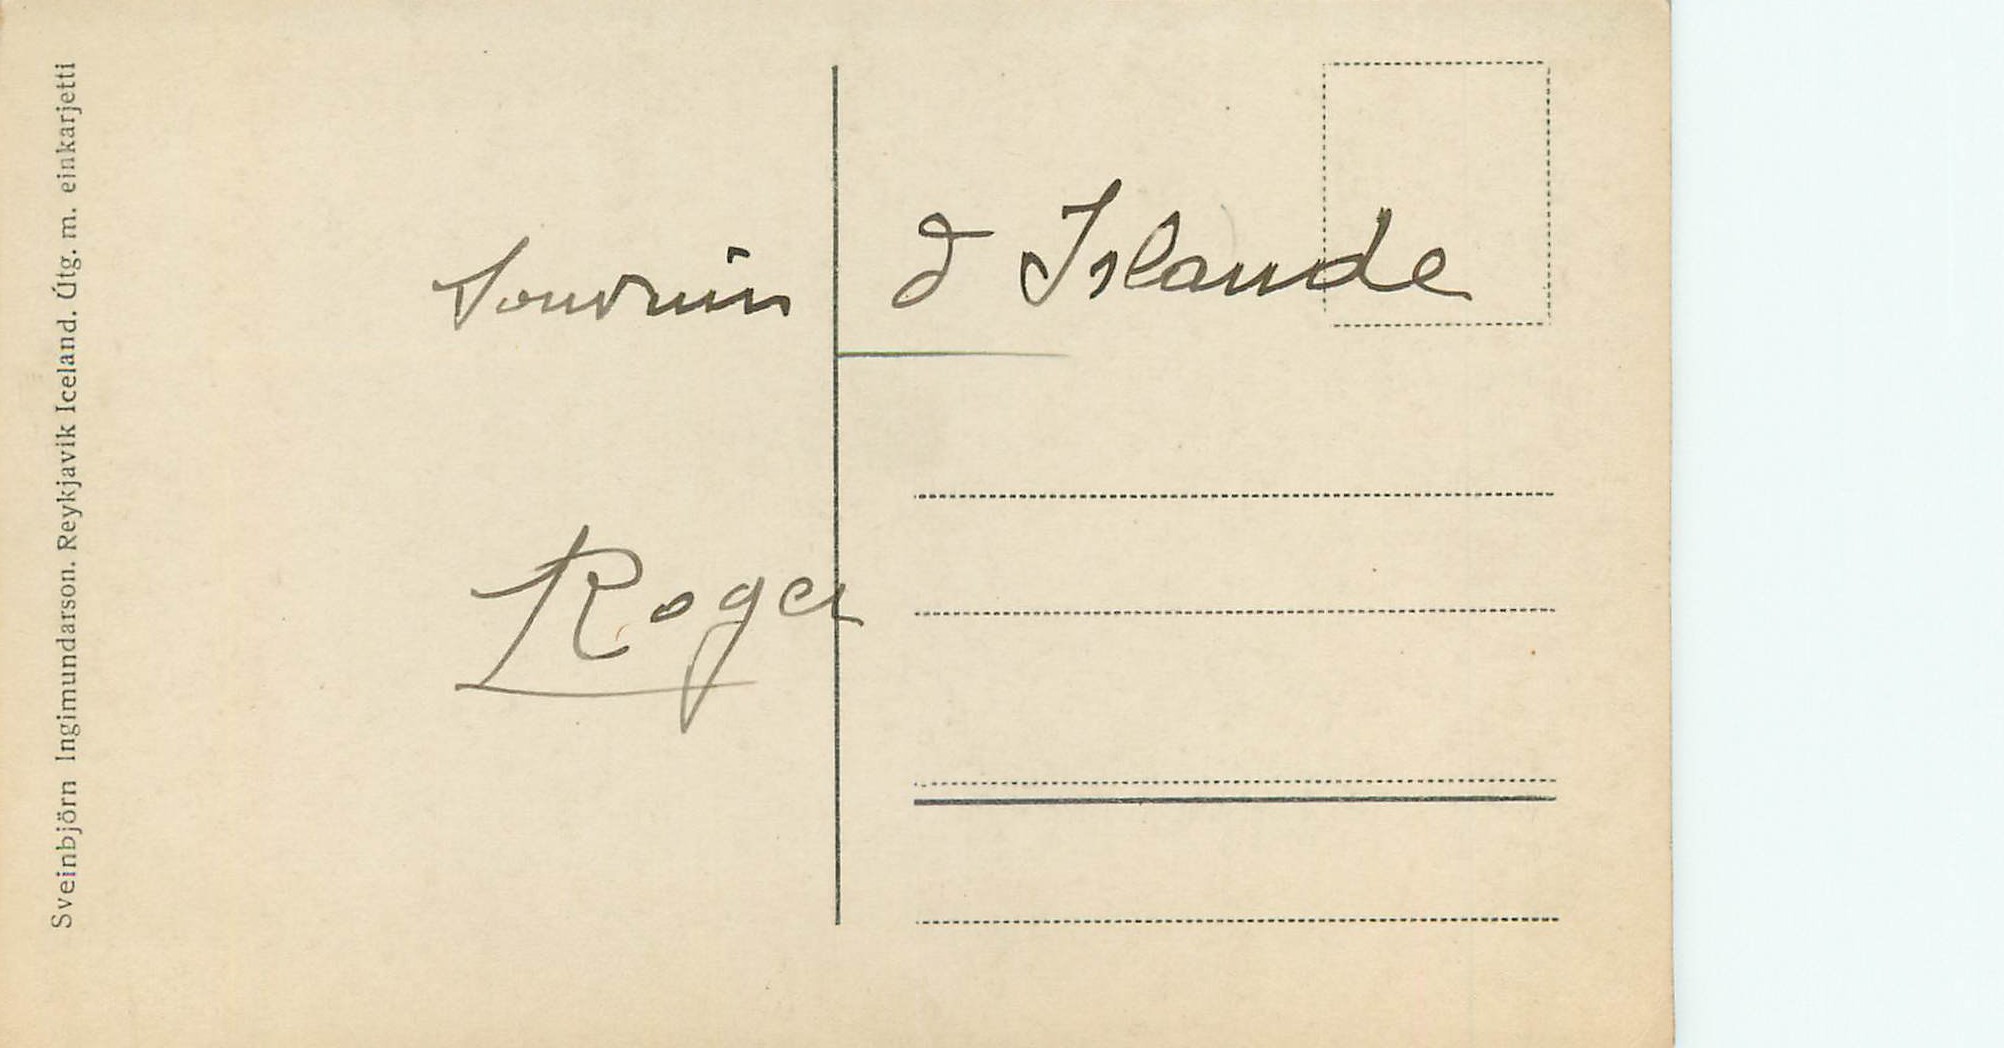 Sveinbjörn Ingimundarson. Reykjavik Iceland. Útg. m. einkarjetti
Souvenir d Islande
Roger